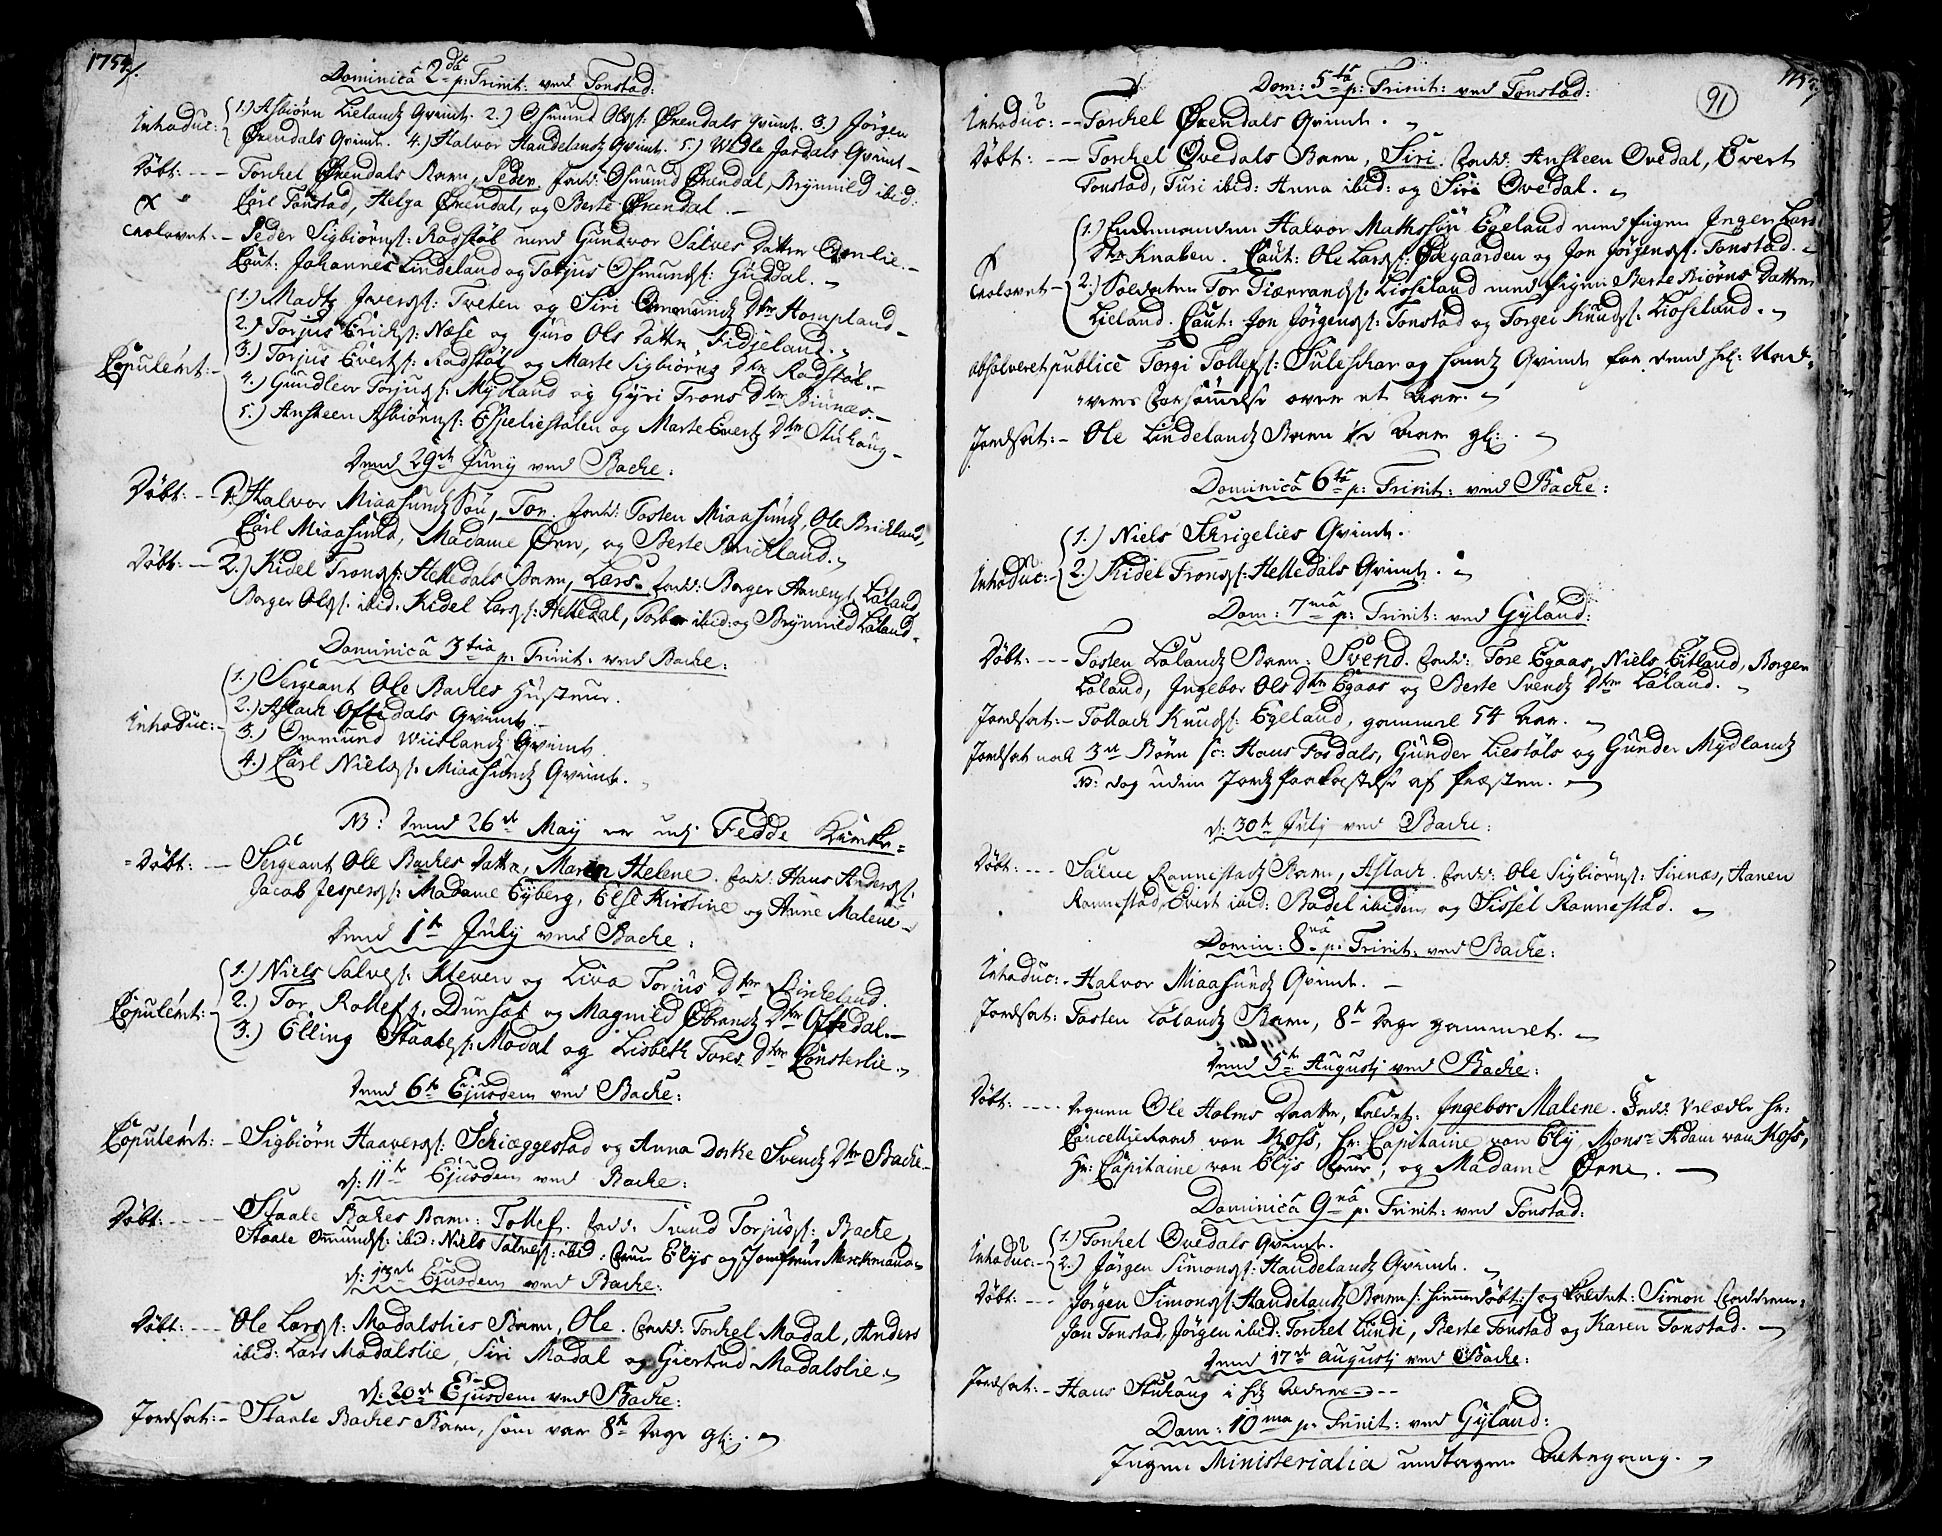 1754.
Dominica 2da p: Trinit: ved Tonstad:
Introduc: 1.) Asbiørn Lielands Qvinde. 2.) Osmund Ols: Ørendals Qvinde. 3.) Jørgen
Ørendals Qvinde. 4.) Halvor Haudelands Qvinde. 5.) Wedle Josdals Qvinde
Døbt: --- Torkel Ørendals Barn, Peder. Fadd: Osmund Ørendal, Brynnild ibid:
Carl Tonstad, Helga Ørendal, og Berte Ørendal.
Trolovet. - Peder Sigbiørns: Rødstøl med Gundvor Salves Datter Omlie.
Caut: Johannes Lindeland og Torjus Osmunds: Guddal.
1.) Madtz Ivers: Tveten og Siri Ommunds Dtr Hompland
2.) Torjus Erichs: Næse og Guro Ols Datter Fidjeland.
Copuleret: - 3.) Torjus Everts: Rødstøl og Marte Sigbiørns Dtr Rødstøl.
4.) Gundleor Torjus: Mydland og Gyri Trons Dtr Biunnæs.
5.) Ansteen Asbiørns: Espeliestølen og Marte Everts Dtr Stuhoug
Dend 29de Junij ved Bache:
Døbt: - 1. Halvor Miaasunds Søn, Tor. Fadd: Tosten Miaasund, Ole Brickland,
Carl Miaasund, Madame Ørn, og Berte Brickland.
Døbt: - 2.) Kidel Trons: Helledals Barn, Lars. Fadd: Borger Aanens: Løland
Borger Ols: ibid. Kidel Lars: Helledal, Torbor ibid: og Brynnild Løland
Dominica 3tia p: Trinit: ved Bache:
1.) Sergeant Ole Baches Hustrue.
2.) Aslach Oftedals Qvinde.
Introduc: - 3.) Ommund Wiitlands Qvinde.
4.) Carl Niels: Miaasunds Qvinde.
NB: Dend 26de Maij er udj Fedde Kirke
Døbt: - Sergeant Ole Baches Datter, Maren Helene. Fadd: Hans Anders:
Jacob Jespers: Madame Eyberg, Else Kirstine og Anne Malene
Dend 1te Julij ved Bache:
1.) Niels Salves: Kleven og Liva Torjus Dtr Birkeland.
Copuleret: 2.) Tor Rollefs: Dunsæt og Magnild Obrands Dtr Oftedal.
3.) Elling Staales: Modal og Lisbeth Tores Dtr Consterlie.
Dend 6te Ejusdem ved Bache:
Copuleret: - Sigbiørn Haavers: Schieggestad og Anna Dorte Svends Dtr Bache
d: 11te Ejusdem ved Bache:
Døbt: ---- Staale Baches Barn: Tollef. Fadd: Svend Torjus: Bache,
Staale Omunds: ibid: Niels Salves: ibid Frue Elys og Jomfrue
d: 13de Ejusdem ved Bache:
Døbt: --- Ole Lars: Modalslies Barn, Ole. Fadd: Torkel Modal, Anders
ibid: Lars Modalslie, Siri Modal og Giertrud Modalslie.
d: 20de Ejusdem ved Bache:
Jordsat: - Staale Baches Barn, som var 8te Dage gl:.
91
Dom: 5ta p: Trinit: ved Tonstad:
Introduc: -- Torchel Ørendals Qvinde.
Døbt: -- Torchel Ovedals Barn, Siri. Fadd: Ansteen Ovedal, Evert
Tonstad, Turi ibid: Anna ibid: og Siri Ovedal.
1.) Enkemanden Halvor Mathssøn Egeland med Pigen Inger Lars
Dtr Knaben. Caut: Ole Lars: Ødegaarden og Jon Jørgens: Tonstad.
Trolovet - 2.) Soldaten Tor Tiærrans: Lisseland med Pigen Berte Biørns Datter
Lieland. Caut: Jon Jørgens: Tonstad og Torgei Knuds: Lioseland.
Absolveret publice Torgi Tollefs: Suleschar og hands Qvinde for dend hel: Nad-
vers Forsømmelse over et Aar.
Jordsat: - Ole Lindelands Barn 1/2 Aar gl:.
Dominica 6te p: Trinit: ved Bache:
1.) Niels Skrigelies Qvinde.
Introduc: 2.) Kidel Trons: Helledals Qvinde.
Dom: 7ma p: Trinit: ved Gyland:
Døbt: --- Tosten Lølands Barn: Svend. Fadd: Tore Egaas, Niels Eitland, Borger
Løland, Ingebor Ols Dtr Egaas og Berte Svends Dtr Løland.
Jordsat: - Tollach Knuds: Egeland, gammel 54 Aar.
Jordsat nok 3de Børn sc: Hans Fosdals, Gunder Liestøls og Gunder Mydlands
NB: dog uden Jords Paakastelse af Præsten.
d: 30te Julij ved Bache:
Døbt: --- Salve Rannestads Barn, Aslach. Fadd: Ole Sigbiørns: Sirenæs, Aanen
Rannestad, Evert ibid: Bodel ibidem og Sissel Rannestad.
Domin: 8va p. Trinit: ved Bache:
Introduc: - Halvor Miaasunds Qvinde.
Jordsat: Tosten Lølands Barn, 8te Dage gammelt.
Dend 5te Augustj ved Bache:
Døbt: ---- Degnen Ole Holms Daatter, kaldet: Ingebor Malene. Fadd: Velædle Hr:
Cancellieraad von Koss, Hr: Capitaine von Ely, Monsr Adam von Koss,
Hr: Capitaine von Elys Frue, og Madam Ørne.
Dominica 9na p. Trinit: ved Tonstad:
1.) Torkel Ovedals Qvinde.
Introduc: - 2.) Jørgen Simons: Haudelands Qvinde.
Døbt: --- Jørgen Simons: Haudelands Barn /: hiemmedøbt :/ og kaldet: Simon Fadderne:
Jon Tonstad, Jørgen ibid: Torchel Lindi, Berte Tonstad og Karen Tonstad.
Dend 17de Augustj ved Bache:
Jordsat: - Hans Stuhaug i
Dom: 10ma p. Trinit: ved Gyland:
Ingen Ministerialia undtagen Løbegang.